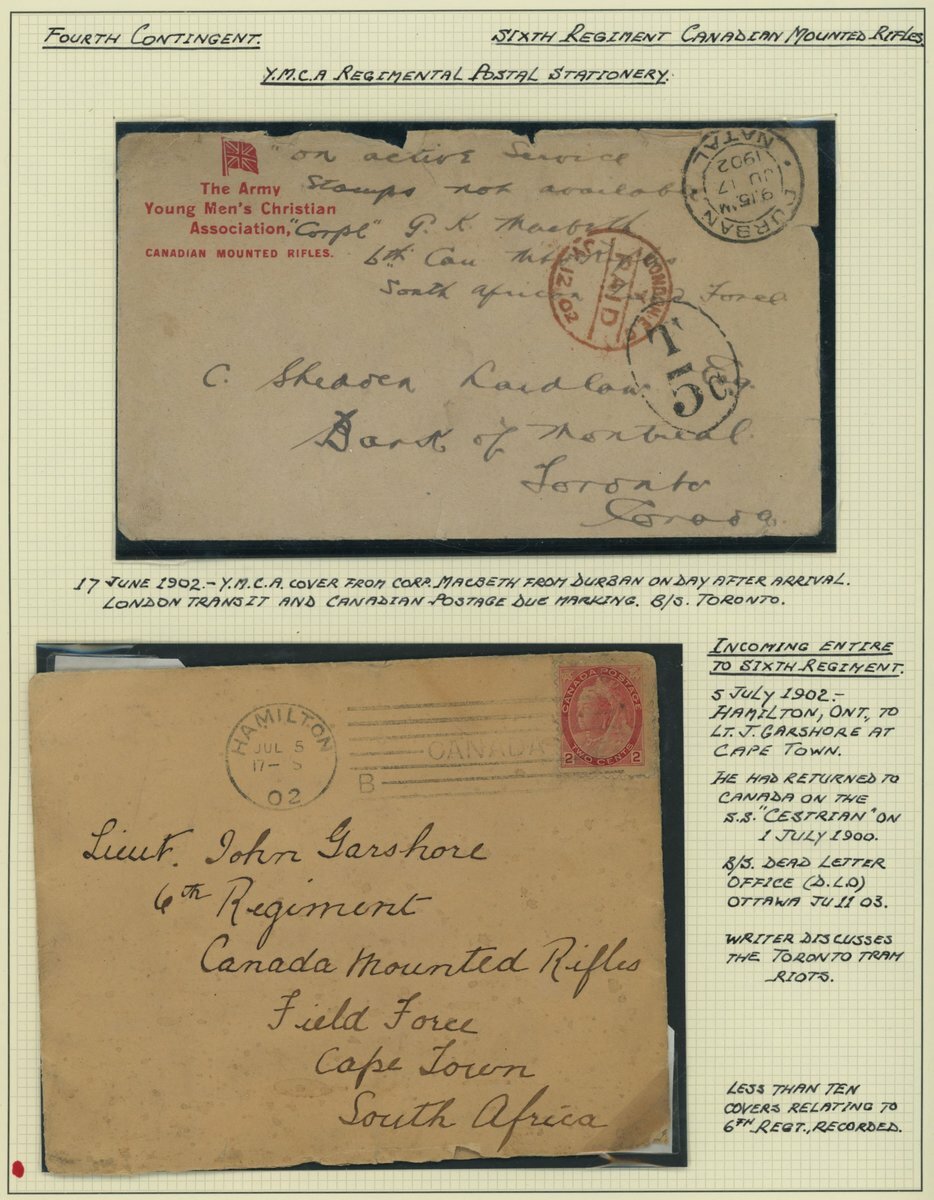 FOURTH CONTINGENT.
SIXTH REGIMENT CANADIAN MOUNTED RIFLES
Y.M.C.A REGIMENTAL POSTAL STATIONERY.
"on active Service
Stamps not available
The Army
Young Men's Christian
Association,
CANADIAN MOUNTED RIFLES.
"Corpl" G. K. Macbeth
6th Can
South African Force
DURBAN
9.15 M
JU 17
1902
NATAL
LONDON. E.C
PAID
JY 12 02
T
5c
C. Shedden Laidlaw Esq.
Bank of Montreal
Toronto
Canada
17 JUNE 1902.- Y.M.C.A. COVER FROM CORP. MACBETH FROM DURBAN ON DAY AFTER ARRIVAL.
LONDON TRANSIT AND CANADIAN POSTAGE DUE MARKING. B/S. TORONTO.
HAMILTON
JUL 5
17- 5
02
CANADA
B
CANADA POSTAGE
2 TWO CENTS 2
Lieut. John Garshore
6th Regiment
Canada Mounted Rifles
Field Force
Cape Town
South Africa
INCOMING ENTIRE
TO SIXTH REGIMENT.
5 JULY 1902.-
HAMILTON, ONT., TO
LT. J. GARSHORE AT
CAPE TOWN.
HE HAD RETURNED TO
CANADA ON THE
S.S. "CESTRIAN" ON
1 JULY 1900.
B/S. DEAD LETTER
OFFICE (D.L.O)
OTTAWA JU 11 03.
WRITER DISCUSSES
THE TORONTO TRAM
RIOTS.
LESS THAN TEN
COVERS RELATING TO
6TH REGT., RECORDED.